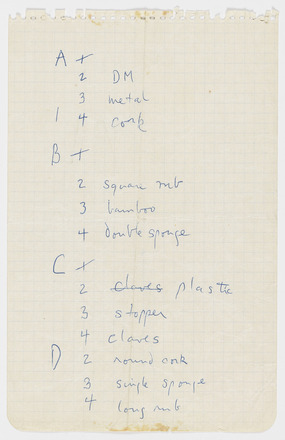 A +
2 DM
3 metal
1 4 cork
B +
2 square rub
3 bamboo
4 double sponge
C +
2 claves plastic
3 stopper
4 claves
D 2 round cork
3 single sponge
4 long rub